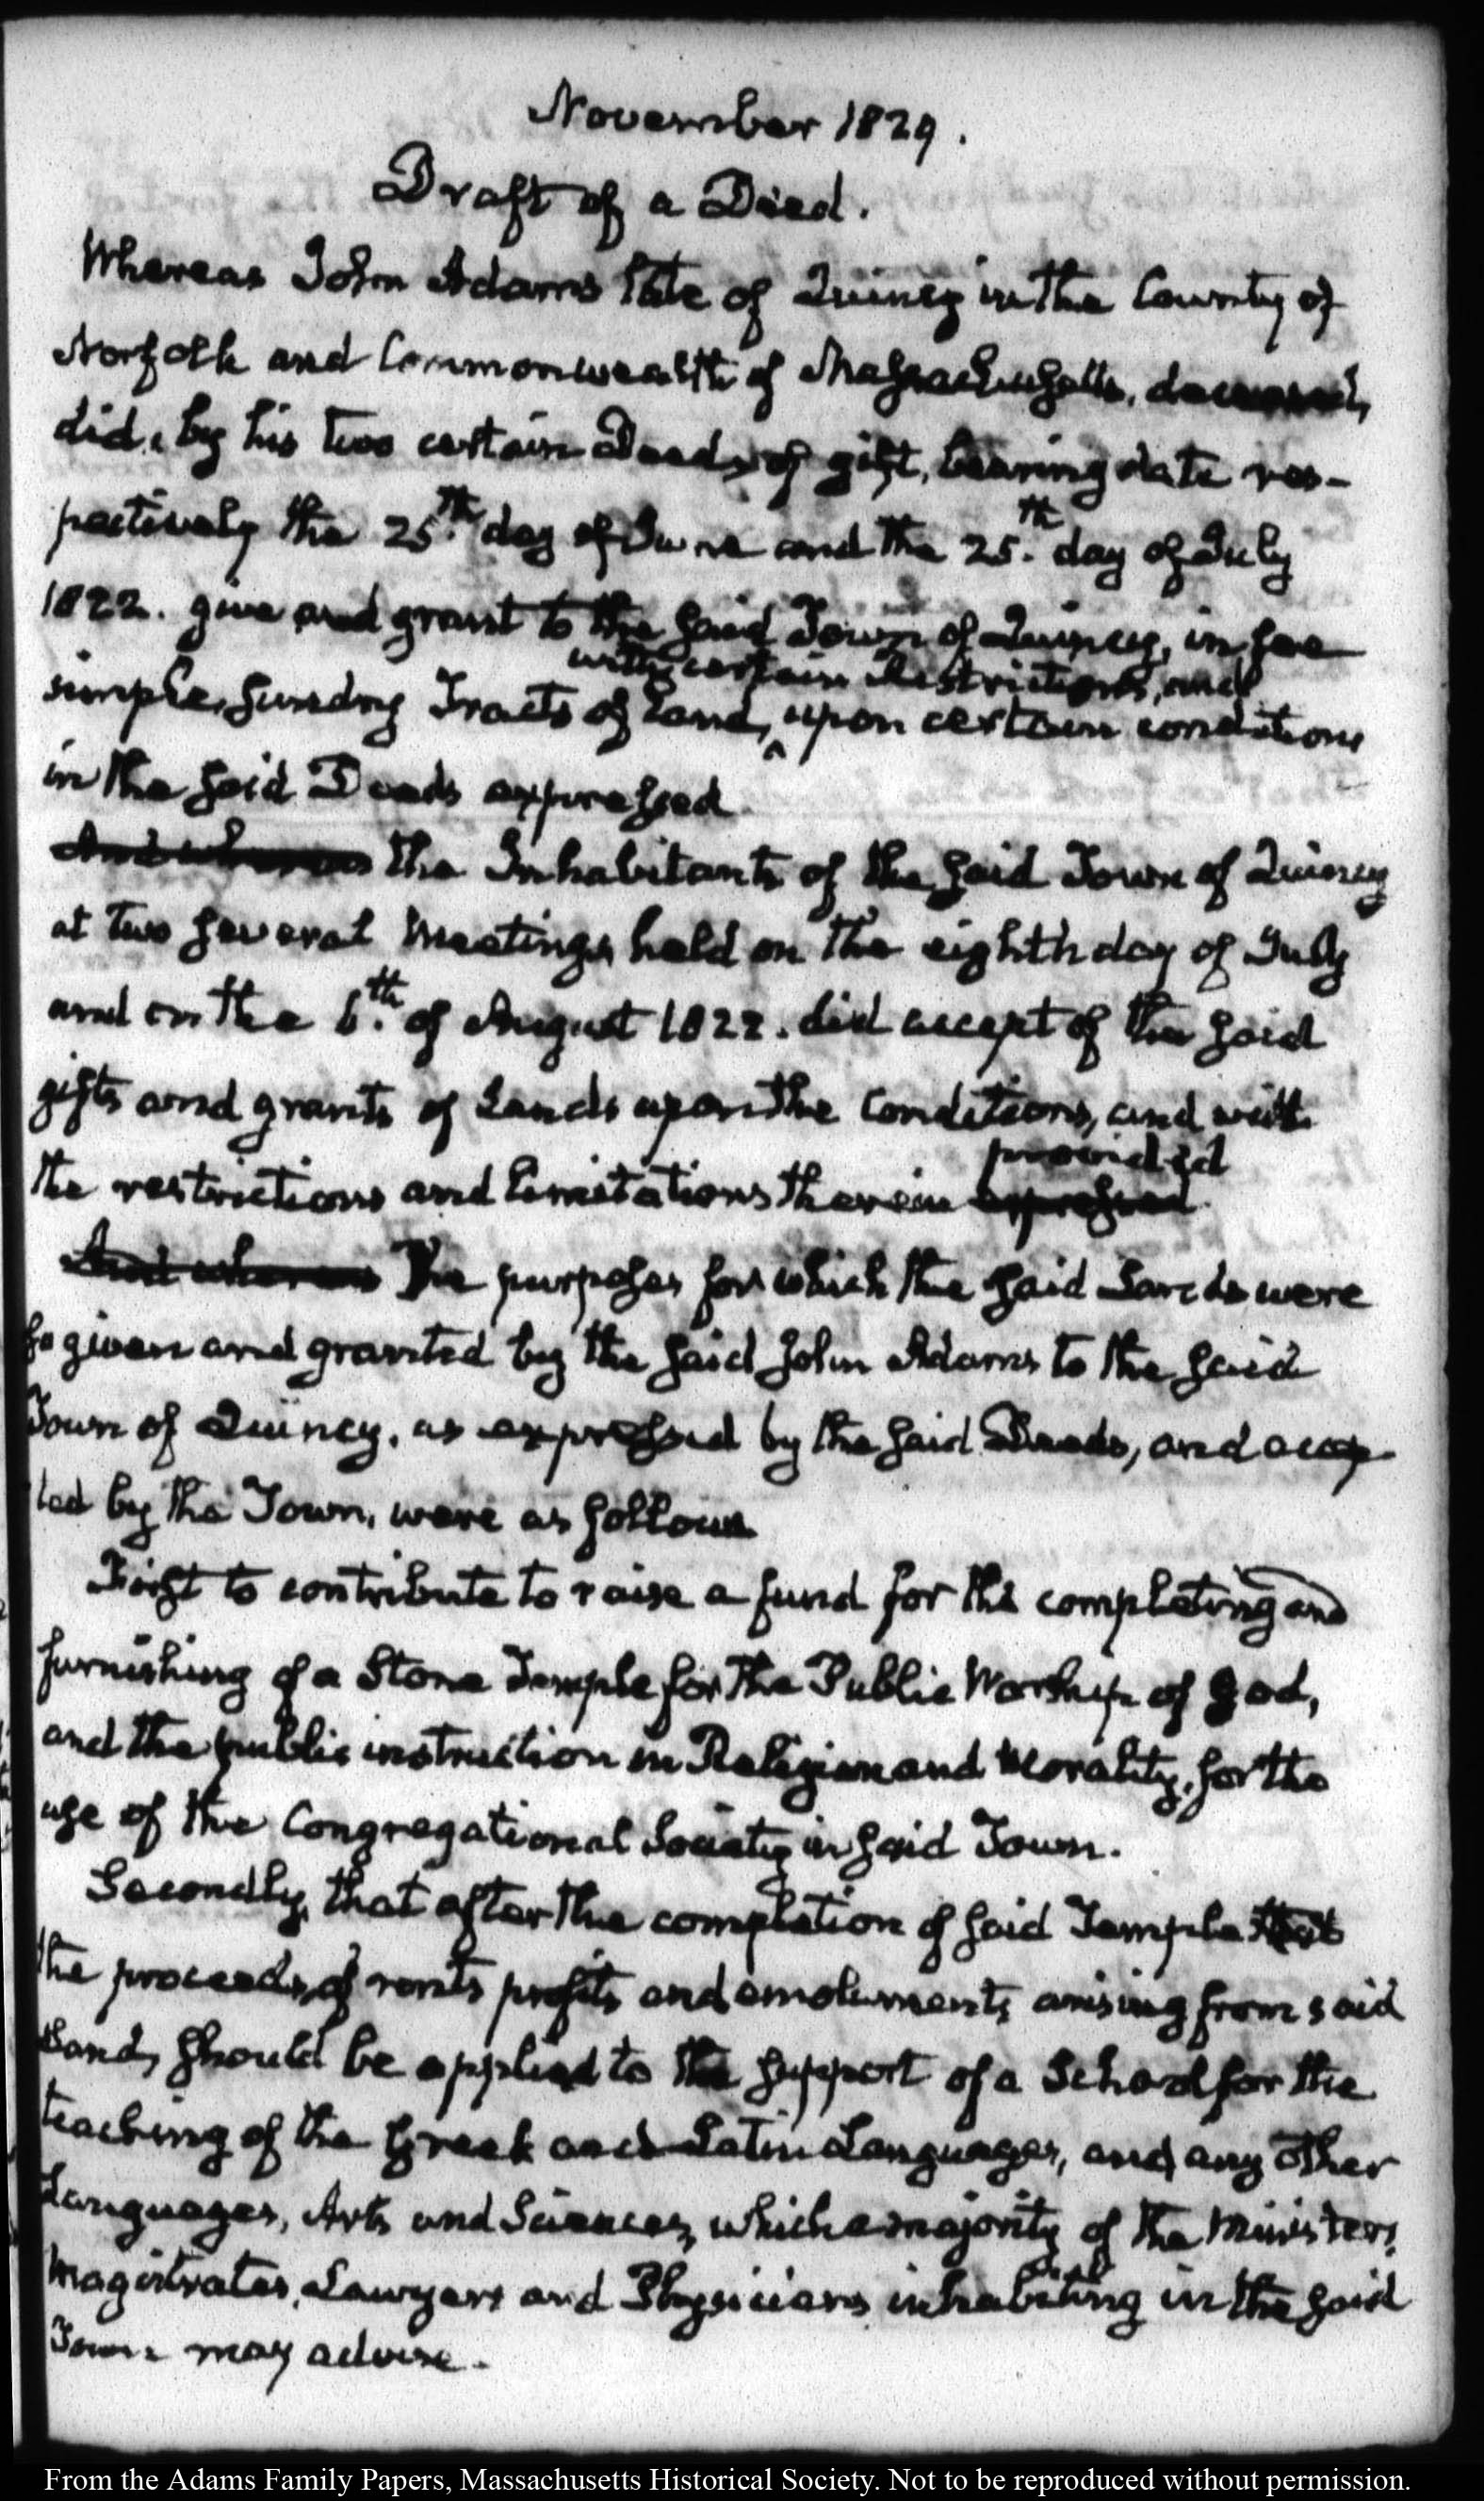 November 1829.
Draft of a Deed.
Whereas John Adams late of Quincy in the County of
Norfolk and Commonwealth of Massachusetts, deceased,
did, by his two certain Deeds of gift, bearing date res-
pectively the 25th day of June and the 25th day of July
1822. give and grant to the said Town of Quincy, in fee
with certain restrictions, and
simple, sundry Tracts of Land, ^ upon certain conditions
in the said Deeds expressed
And whereas the Inhabitants of the said Town of Quincy
at two several Meetings held on the eighth day of July
and on the 6th of August 1822. did accept of the said
gifts and grants of Lands upon the Conditions, and with
provided
the restrictions and limitations therein expressed.
And whereas The purposes for which the said Lands were
so given and granted by the said John Adams to the said
Town of Quincy, as expressed by the said Deeds, and accep-
ted by the Town, were as follows
First to contribute to raise a fund for the completing and
furnishing of a Stone Temple for the Public Worship of God,
and the public instruction in Religion and Morality, for the
use of the Congregational Society in said Town.
Secondly, that after the completion of said Temple that
the proceeds, of rents profits and emoluments arising from said
Land, should be applied to the support of a School for the
teaching of the Greek and Latin Languages, and any other
Languages, Arts and Sciences, which a majority of the Ministers,
Magistrates, Lawyers and Physicians inhabiting in the said
Town may advise.
From the Adams Family Papers, Massachusetts Historical Society. Not to be reproduced without permission.